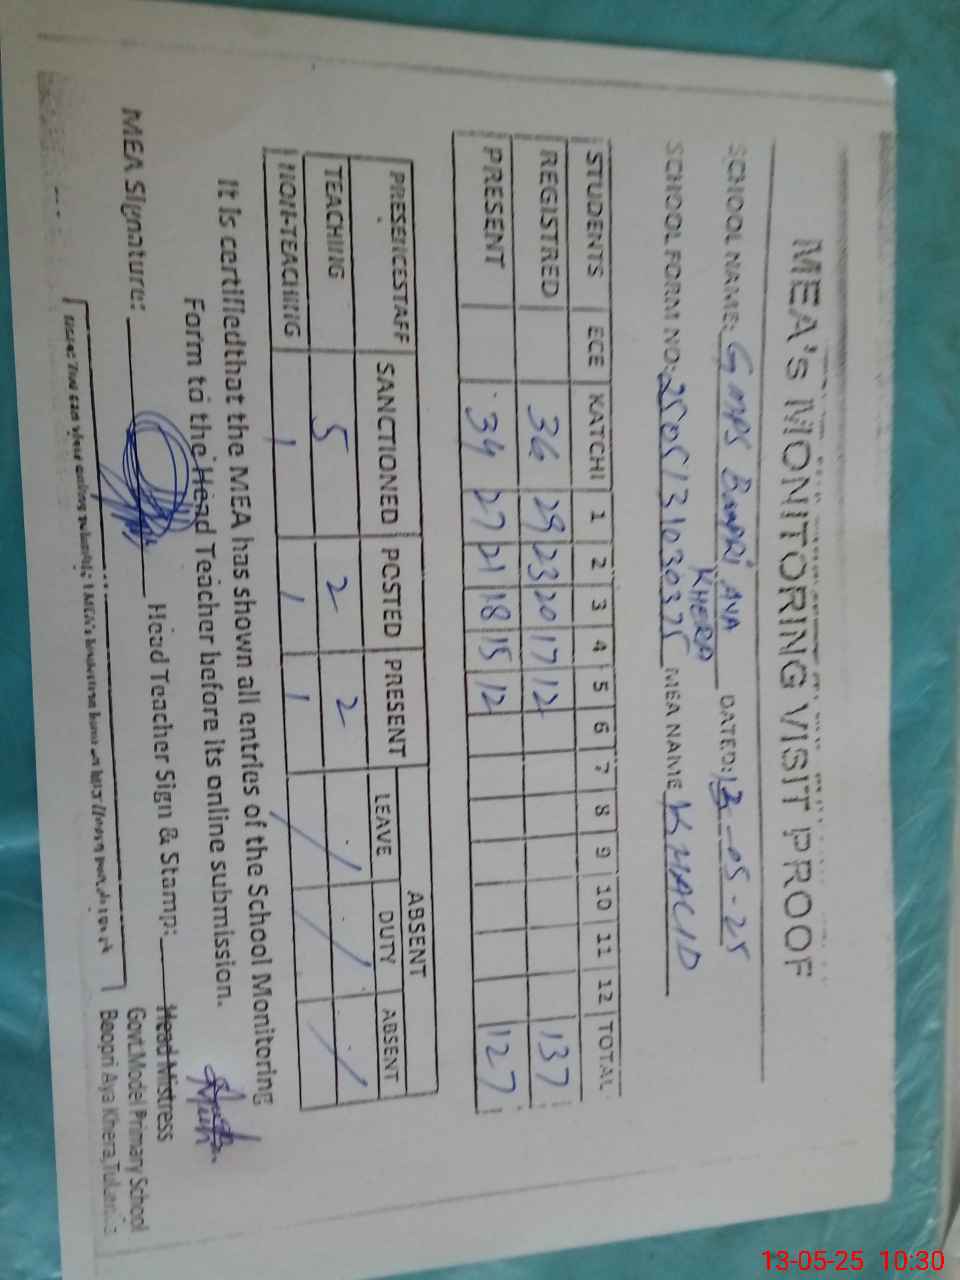 MEA's MONITORING VISIT PROOF
SCHOOL NAME: GMPS Boopri Aya Khera DATED: 13-05-25
SCHOOL FORM NO: 2505131030375 MEA NAME KHALID
STUDENTS ECE KATCHI 1 2 3 4 5 6 7 8 9 10 11 12 TOTAL
REGISTRED 36 29 23 20 17 12 137
PRESENT 34 27 21 18 15 12 127
PRESENCESTAFF SANCTIONED POSTED PRESENT ABSENT
LEAVE DUTY ABSENT
TEACHING 5 2 2 / / /
NON-TEACHING 1 1 1 / / /
It is certifiedthat the MEA has shown all entries of the School Monitoring
Form to the Head Teacher before its online submission.
MEA Signature: Head Teacher Sign & Stamp:
Head Mistress
Govt.Model Primary School
Boopri Aya Khera,
You can view online
13-05-25 10:30